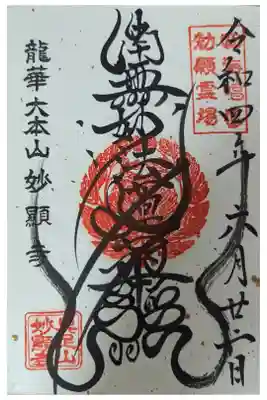 令和四年六月廿二日
勅願霊場
南無妙法蓮華経
龍華大本山妙顯寺
妙顯寺